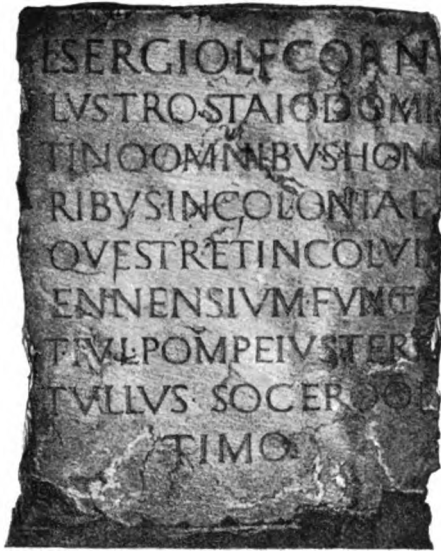 L·SERGIO L F CORN
LVSTROSTAIO DOMI
TINO OMNIBVS HON
RIBVS IN COLONIA E
QVESTRE T IN COL VI
ENNENSIVM·FVNCT
T FVL POMPEIVS TER
TVLLVS · SOCERO O
TIMO